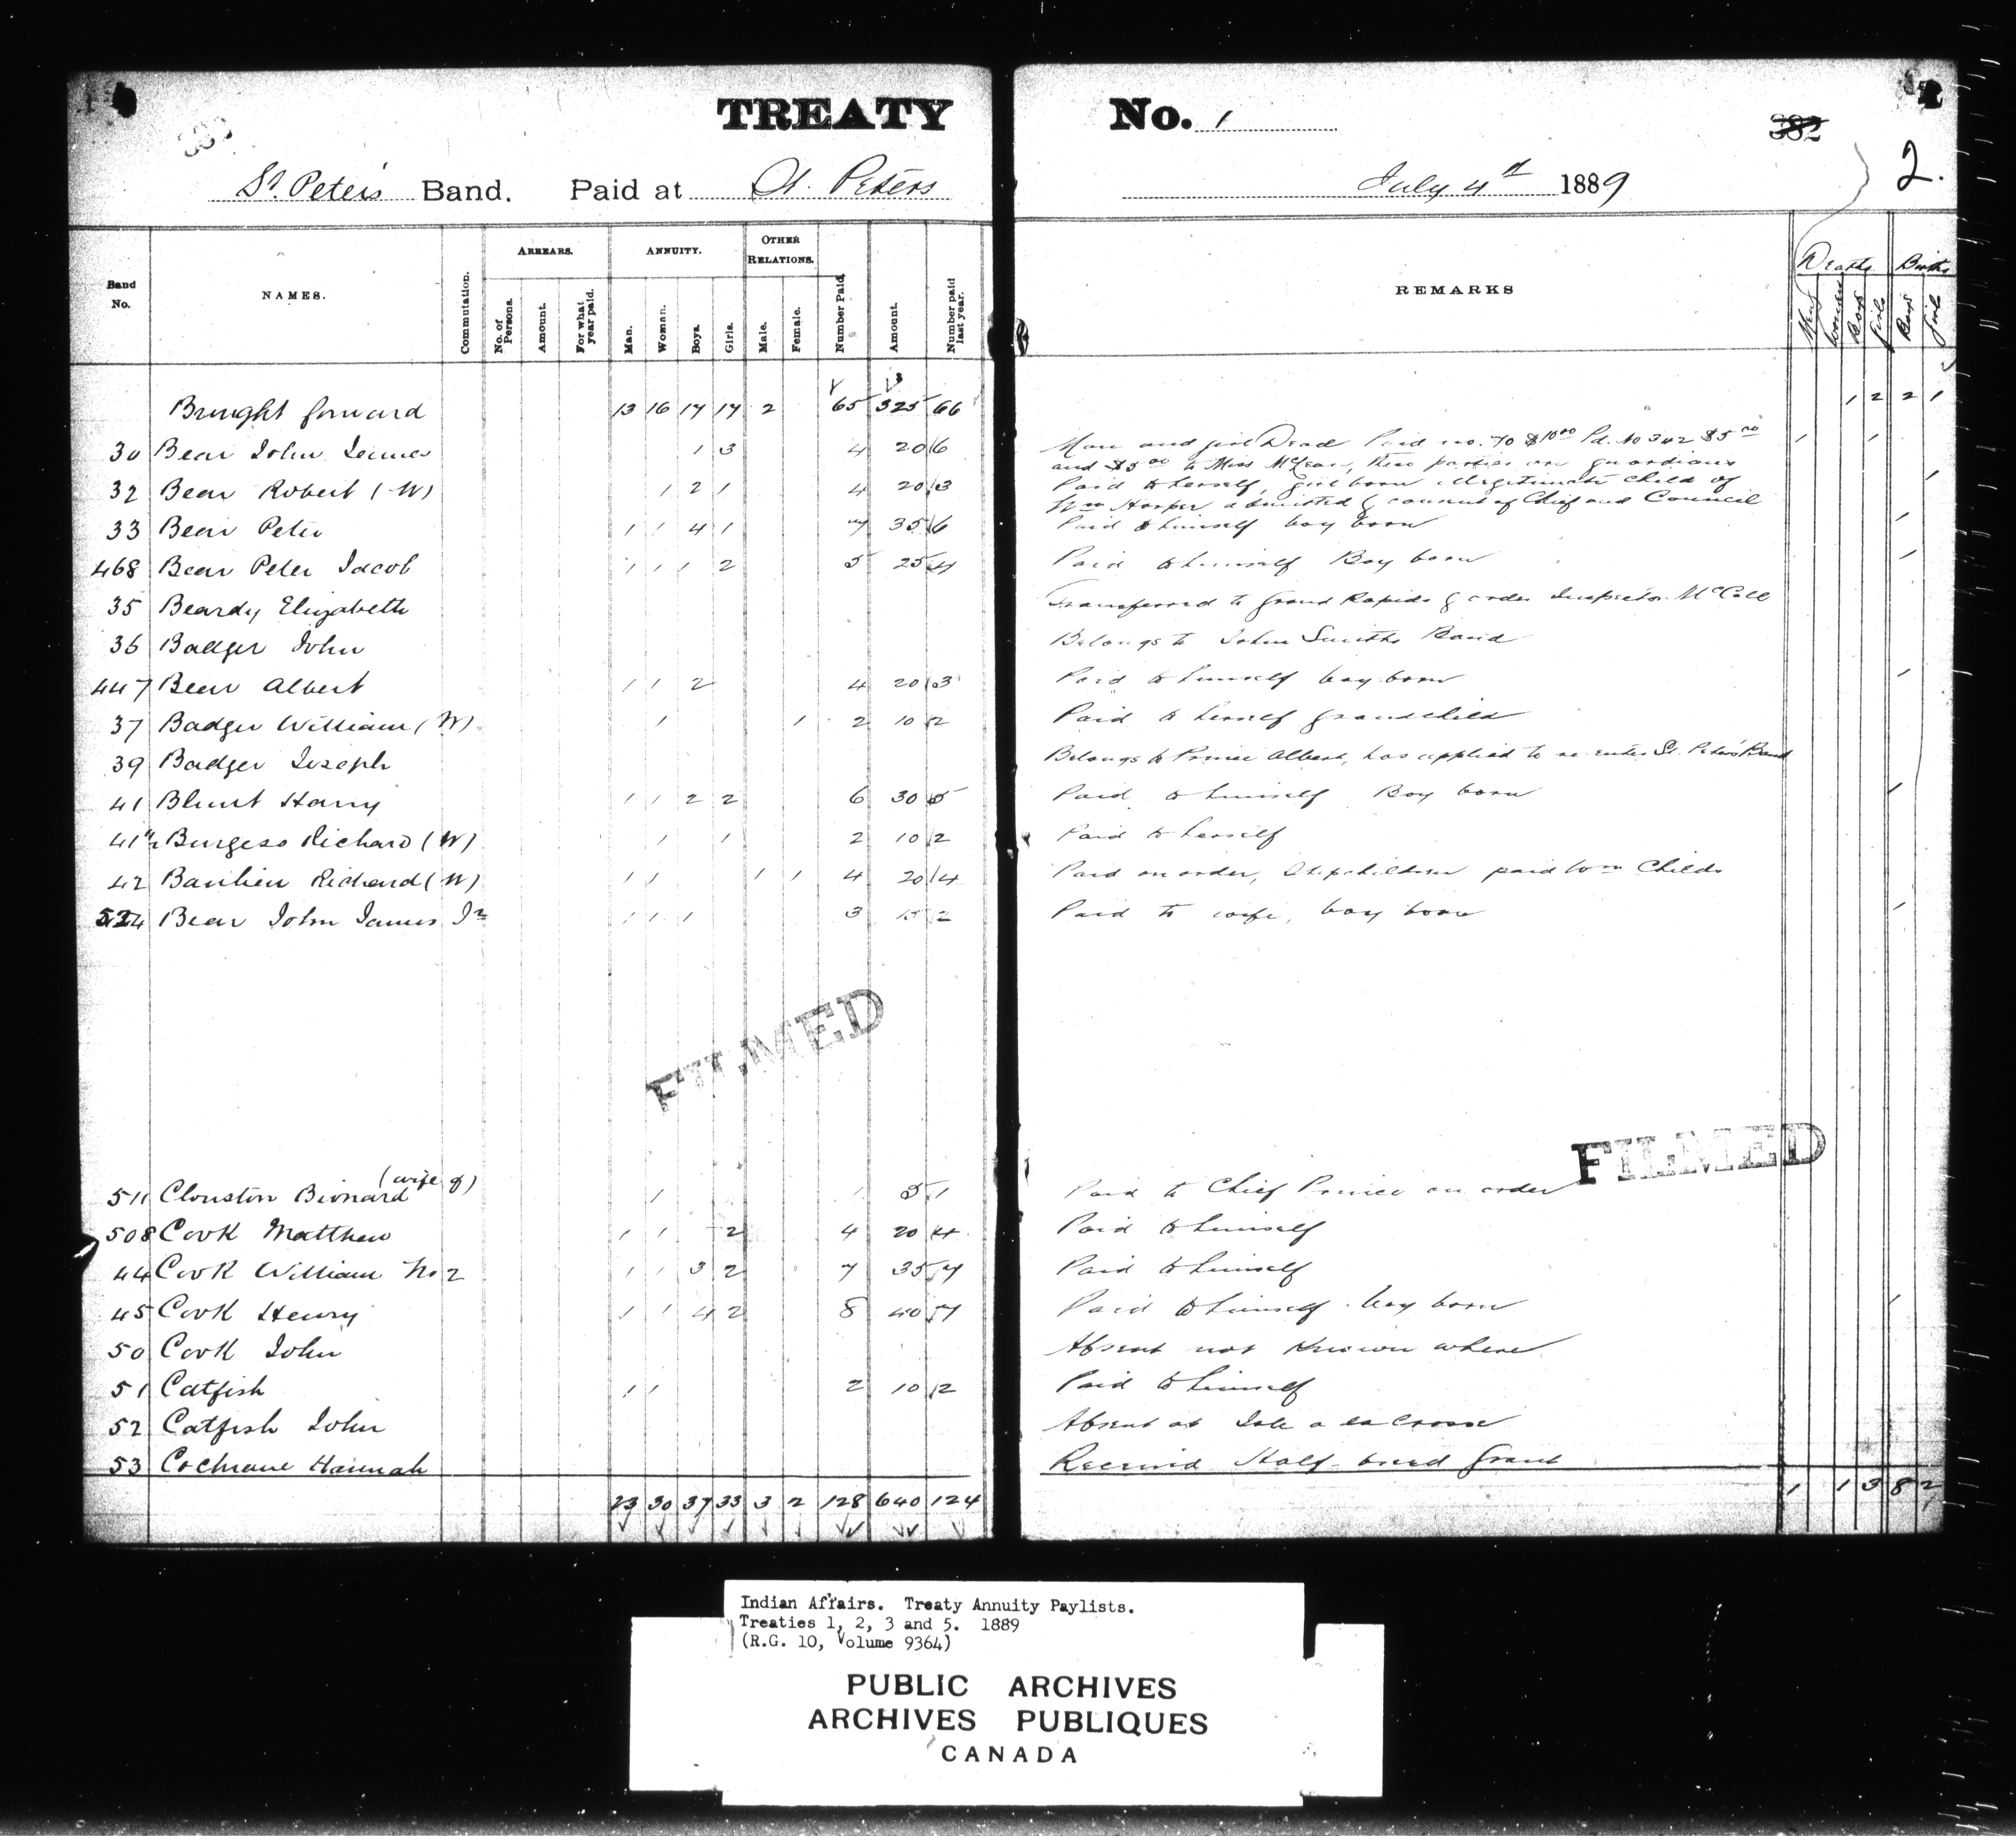 TREATY No. 1
382
2.
St. Peter's Band. Paid at St. Peters July 4th 1889
Band No. NAMES. Commutation. ARREARS. No. of Persons. Amount. For what year paid. ANNUITY. Man. Woman. Boys. Girls. OTHER RELATIONS. Male. Female. Number Paid. Amount. Number paid last year. REMARKS Deaths Men Women Boys Girls Births Boys Girls
Brought forward 13 16 17 17 2 65 325 66 1 2 2 1
30 Bear John James 1 3 4 20 6 Man and girl Dead Paid no. 70 $10.00 Pd. No 342 $5.00 1 1
and $5.00 to Miss McLean, these parties are guardians
32 Bear Robert (W) 1 2 1 4 20 3 Paid to herself, girl born illegitimate child of 1
Wm Harper admitted by consent of Chief and Council
33 Bear Peter 1 1 4 1 7 35 6 Paid to himself boy born 1
468 Bear Peter Jacob 1 1 1 2 5 25 4 Paid to himself Boy born 1
35 Beardy Elizabeth Transferred to Grand Rapids by order Inspector McColl
36 Badger John Belongs to John Smiths Band
447 Bear Albert 1 1 2 4 20 3 Paid to himself boy born 1
37 Badger William (W) 1 1 2 10 2 Paid to herself grandchild
39 Badger Joseph Belongs to Prince Albert, has applied to re-enter St. Peter's Band
41 Blunt Harry 1 1 2 2 6 30 5 Paid to himself Boy born 1
41½ Burgess Richard (W) 1 1 2 10 2 Paid to herself
42 Richard (W) 1 1 1 1 4 20 4 Paid on order, Stepchildren paid Wm Childs
524 Bear John James Jr 1 1 1 3 15 2 Paid to wife, boy born 1
FILMED
FILMED
(wife of)
511 Clouston 1 1 5 1 Paid to Chief Prince on order
508 Cook Matthew 1 1 2 4 20 4 Paid to himself
44 Cook William No 2 1 1 3 2 7 35 7 Paid to himself
45 Cook Henry 1 1 4 2 8 40 7 Paid to himself boy born 1
50 Cook John Absent not known where
51 Catfish 1 1 2 10 2 Paid to himself
52 Catfish John Absent at Isle a la Crosse
53 Cochrane Hannah Received Half-breed grant
23 30 37 33 3 2 128 640 124 1 1 3 8 2
Indian Affairs. Treaty Annuity Paylists.
Treaties 1, 2, 3 and 5. 1889
(R.G. 10, Volume 9364)
PUBLIC ARCHIVES
ARCHIVES PUBLIQUES
CANADA